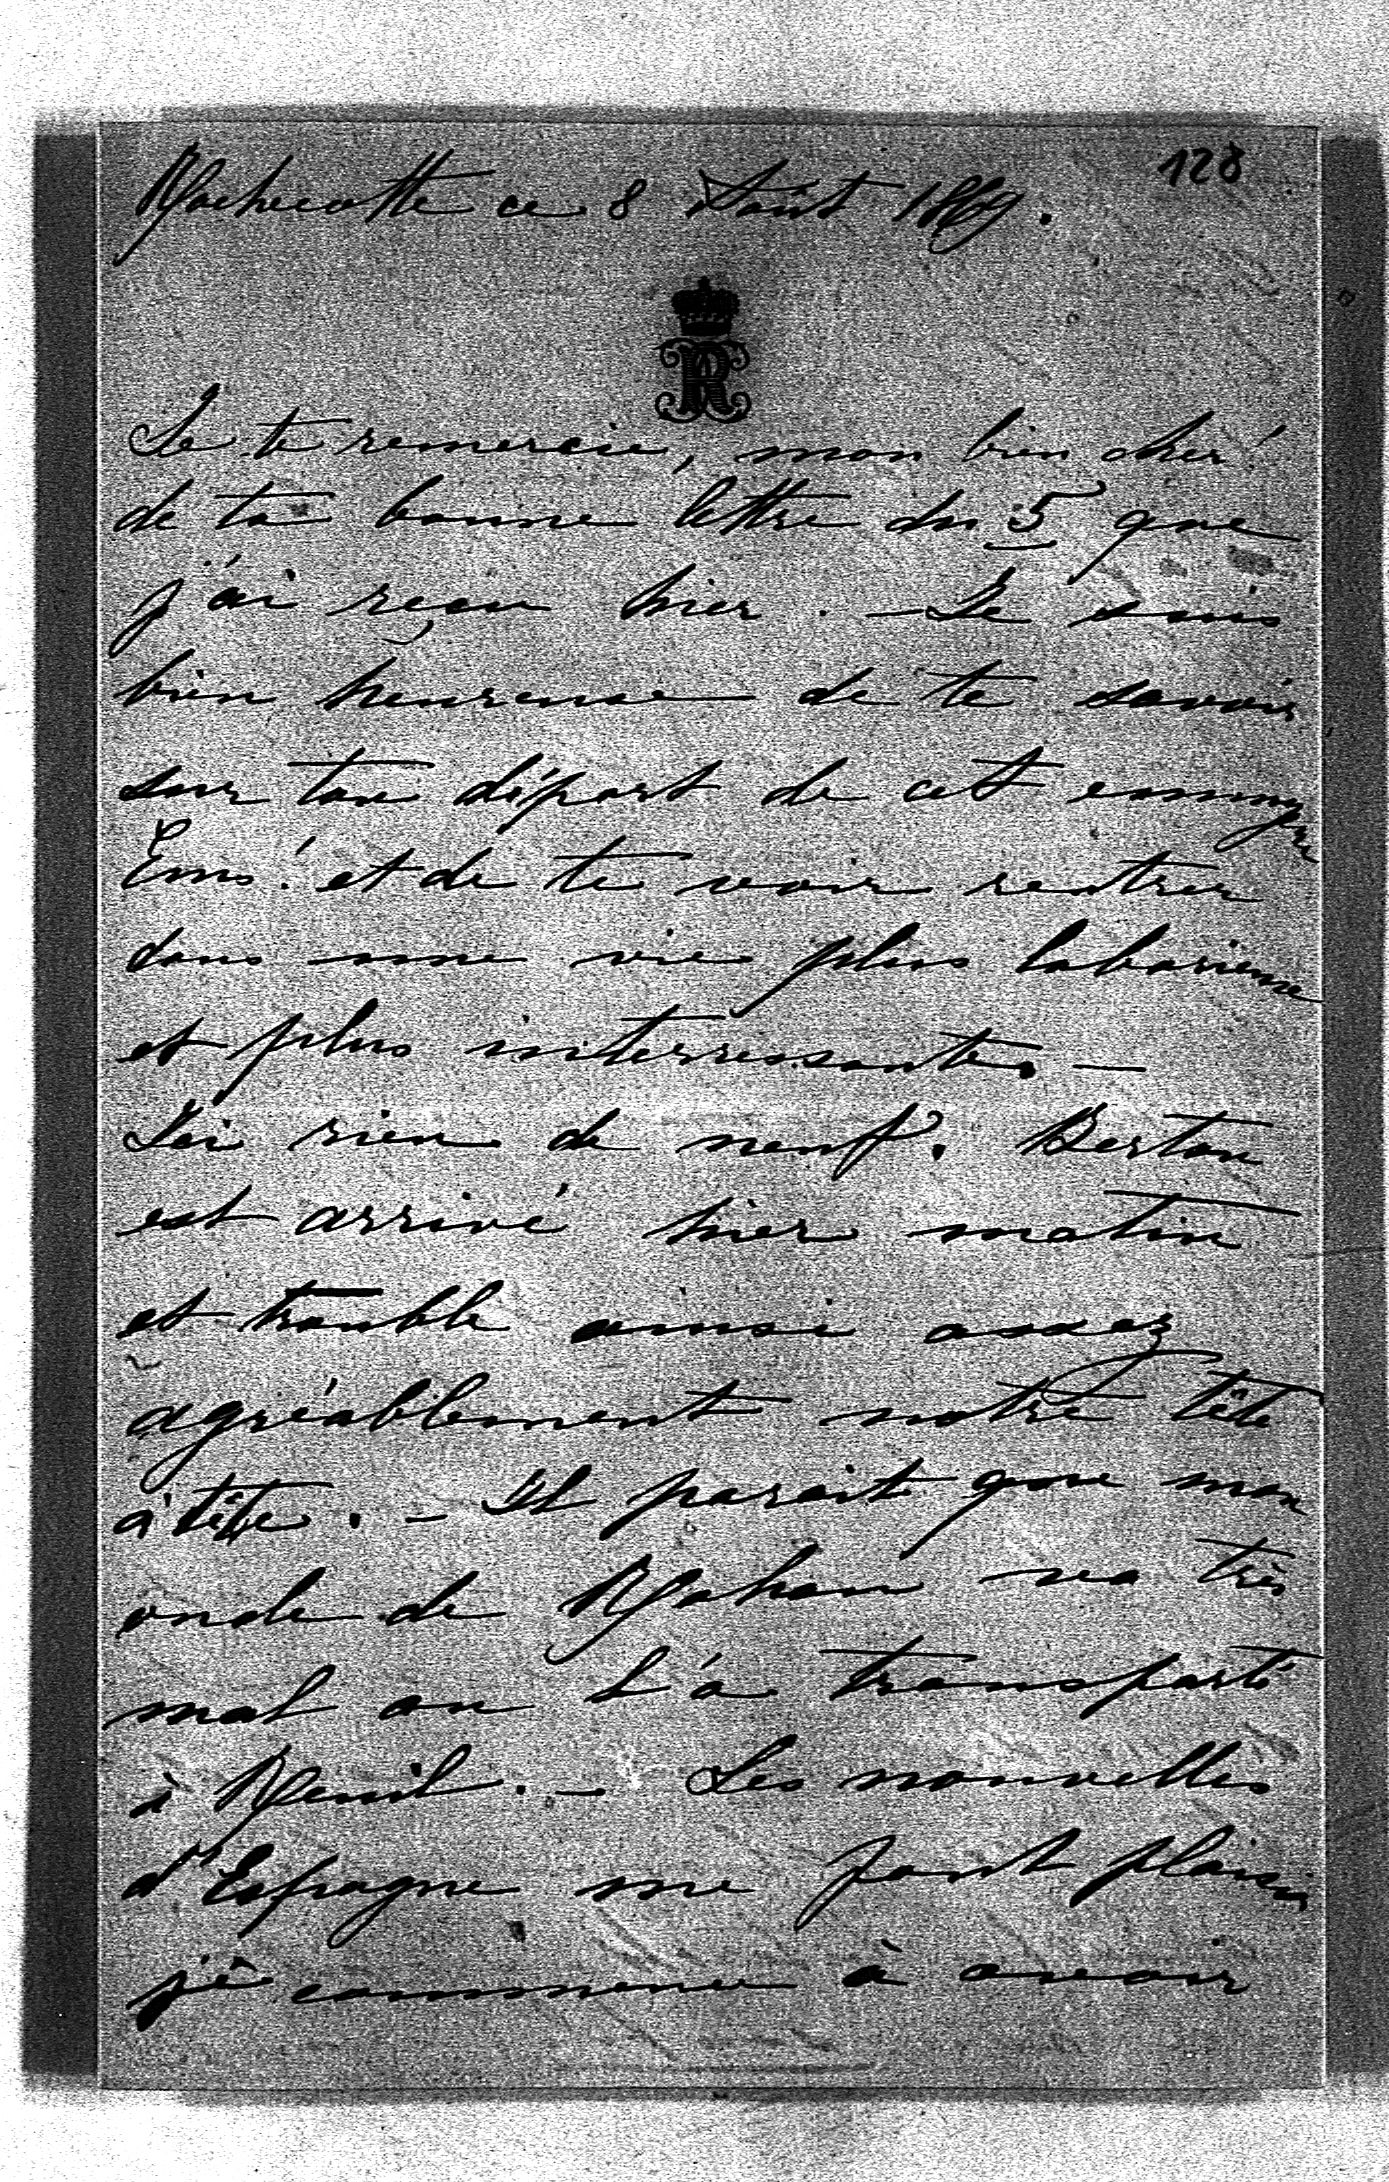 128
Rochecotte ce 8 Août 1869.
Je te remercie, mon bien cher!
de ta bonne lettre du 5 que
j'ai reçu hier. - Je suis
bien heureuse de te savoir
sur ton départ de cet ennuyeu
Ems! et de te voir rentrer
dans une vie plus laborieuse
et plus interressante. —
J'ai rien de neuf. Berton
est arrivé hier matin
et trouble ainsi assez
agréablement notre tête
à tête. - Il parait que mon
oncle de Rohan va très
mal on l'a transporté
à Reuil. — Les nouvelles
d'Espagne me font plaisir
je commence à avoir